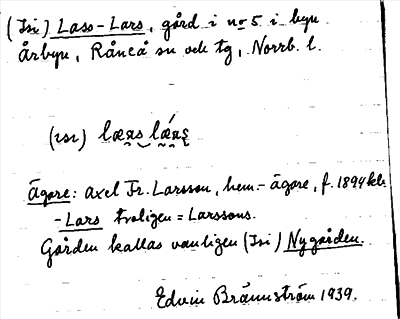 (Isi) Lass-Lars, gård i nr 5 i byn
Årbyn, Råneå sn och tg, Norrb. l.
Ägare: Axel Fr. Larsson, hem.-ägare, f. 1894
-Lars troligen = Larssons.
Gården kallas vanligen (Isi) Nygården.
Edvin Brännström 1939.